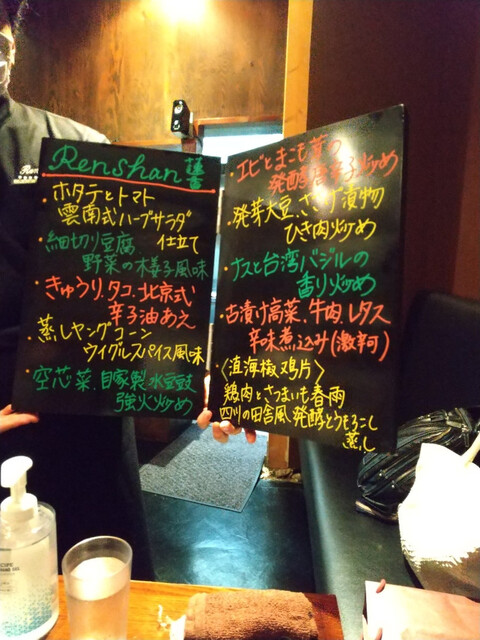 Renshan 蓮香
・ホタテとトマト
雲南式ハーブサラダ
仕立て
・細切り豆腐
野菜の木姜子風味
・きゅうり、タコ、北京式
辛子油あえ
・蒸しヤングコーン
ウイグルスパイス風味
・空芯菜、自家製水豆豉
強火炒め
・エビとまこも茸の
発酵唐辛子炒め
・発芽大豆、ささげ漬物
ひき肉炒め
・ナスと台湾バジルの
香り炒め
・古漬け高菜、牛肉、レタス
辛味煮込み(激辛可)
鶏肉とさつまいも春雨
四川の田舎風 発酵とうもろこし
蒸し